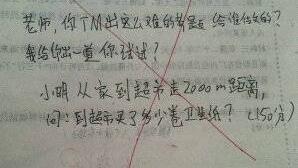 老师，你TM出这么难的题 给谁做的？
我给你出一道 你试试？
小明 从家到超市走2000m距离，
问：到超市买了多少卷卫生纸？（150分）